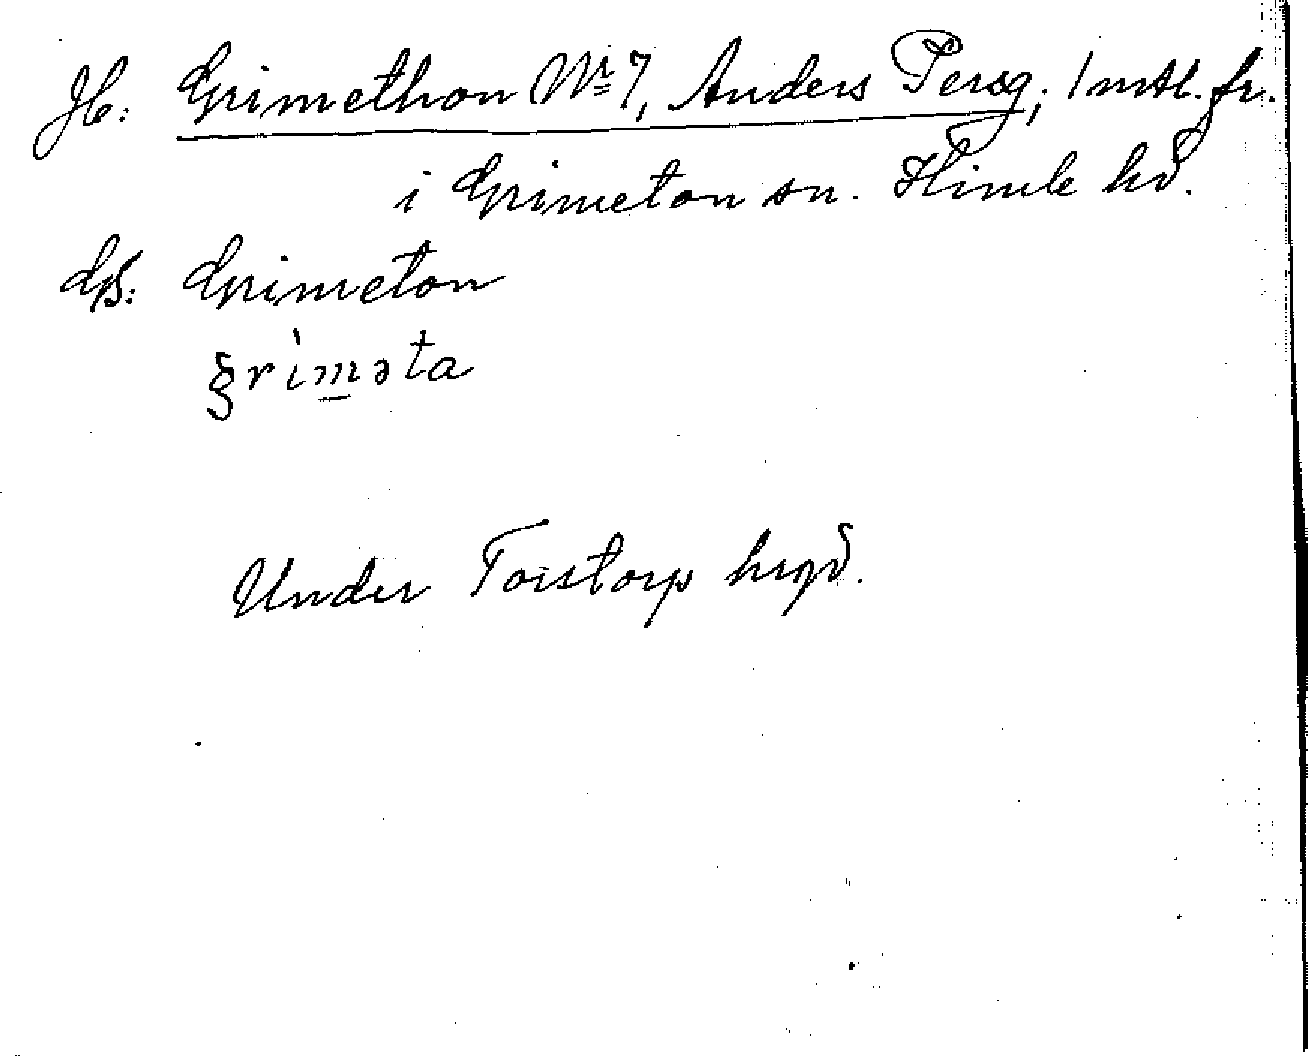 Jb: Grimethon Nr 7, Anders Persg; 1 mtl. fr.
i Grimeton sn. Himle hd.
GS: Grimeton
grìməta
Under Torstorp hrgd.